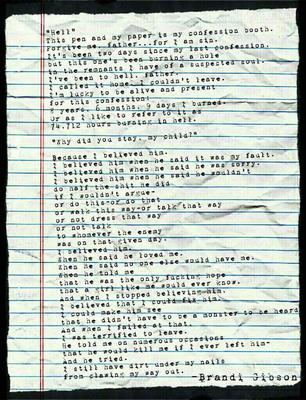 "Hell"
This pen and my paper is my confession booth.
Forgive me, father...for I am sin.
It's been two days since my last confession,
but this one's been burning a hole
in the remnants I have of a suspected soul.
I've been to hell, father.
I called it home- I couldn't leave.
I'm lucky to be alive and present
for this confession:
8 years, 6 months, 9 days I burned.
Or as I like to refer to it as
74,712 hours burning in hell.
"Why did you stay, my child?"
Because I believed him.
I believed him when he said it was my fault.
I believed him when he said he was sorry.
I believed him when he said he wouldn't
do half the shit he did
if I wouldn't argue-
or do this-or do that
or walk this way-or talk that way
or not dress that way
or not talk
to whomever the enemy
was on that given day.
I believed him.
When he said he loved me.
When he said no one else would have me.
When he told me
that he was the only fucking hope
that a girl like me would ever know.
And when I stopped believing him,
I believed that I could fix him.
I could make him see
that he didn't have to be a monster to be heard
And when I failed at that,
I was terrified to leave.
He told me on numerous occasions
that he would kill me if I ever left him-
And he tried.
I still have dirt under my nails
from clawing my way out.
-Brandi Gibson